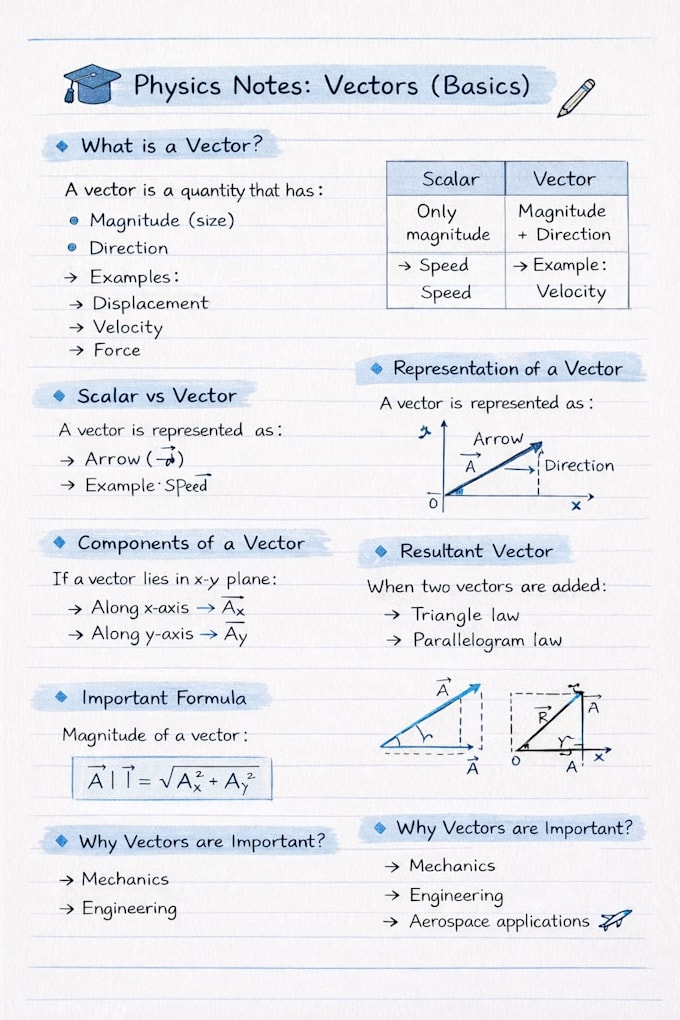 Physics Notes: Vectors (Basics)
What is a Vector?
A vector is a quantity that has:
Magnitude (size)
Direction
→ Examples:
→ Displacement
→ Velocity
→ Force
Scalar Vector
Only Magnitude
magnitude + Direction
→ Speed → Example:
Speed Velocity
Scalar vs Vector
A vector is represented as:
→ Arrow
→ Example· Speed
Representation of a Vector
A vector is represented as:
Arrow
A⃗
Direction
O
x
Components of a Vector
If a vector lies in x-y plane:
→ Along x-axis → A⃗ₓ
→ Along y-axis → A̅y
Resultant Vector
When two vectors are added:
→ Triangle law
→ Parallelogram law
Important Formula
Magnitude of a vector:
A⃗ | I⃗ = √Aₓ² + Ay²
A⃗
h
A⃗
R⃗
A⃗
r
O
A
x
Why Vectors are Important?
→ Mechanics
→ Engineering
Why Vectors are Important?
→ Mechanics
→ Engineering
→ Aerospace applications